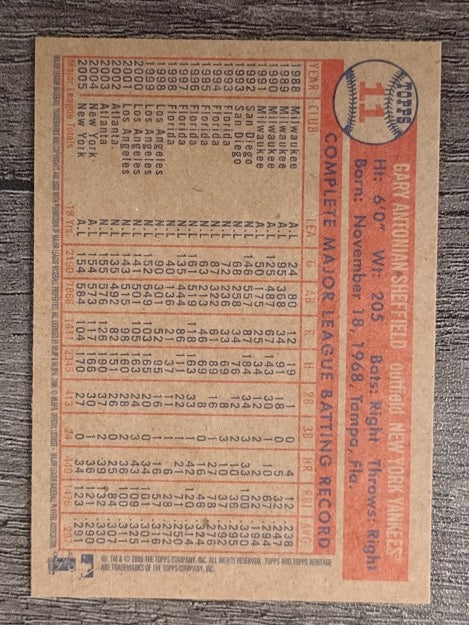 TOPPS
11
GARY ANTONIAN SHEFFIELD outfield NEW YORK YANKEES®
Ht: 6'0" Wt: 205 Bats: Right Throws: Right
Born: November 18, 1968, Tampa, Fla
COMPLETE MAJOR LEAGUE BATTING RECORD
YEAR CLUB LEA G AB R H 2B 3B HR RBI AVG
1988 Milwaukee A.L. 24 80 12 19 1 0 4 12 .238
1989 Milwaukee A.L. 95 368 34 91 18 0 5 32 .247
1990 Milwaukee A.L. 125 487 67 143 30 1 10 67 .294
1991 Milwaukee A.L. 50 175 25 34 12 2 2 22 .194
1992 San Diego N.L. 146 557 87 184 34 3 33 100 .330
1993 San Diego N.L. 68 258 34 76 12 2 10 36 .295
1993 Florida N.L. 72 236 33 69 8 3 10 37 .292
1994 Florida N.L. 87 322 61 89 16 1 27 78 .276
1995 Florida N.L. 63 213 46 69 8 0 16 46 .324
1996 Florida N.L. 161 519 118 163 33 1 42 120 .314
1997 Florida N.L. 135 444 86 111 22 1 21 71 .250
1998 Florida N.L. 40 136 21 37 11 1 6 28 .272
1998 Los Angeles N.L. 90 301 52 95 16 1 16 57 .316
1999 Los Angeles N.L. 152 549 103 165 20 0 34 101 .301
2000 Los Angeles N.L. 141 501 105 163 24 3 43 109 .325
2001 Los Angeles N.L. 143 515 98 160 28 2 36 100 .311
2002 Atlanta N.L. 135 492 82 151 26 0 25 84 .307
2003 Atlanta N.L. 155 576 126 190 37 2 39 132 .330
2004 New York A.L. 154 573 117 166 30 1 36 121 .290
2005 New York A.L. 154 584 104 170 27 0 34 123 .291
Major League Totals 18 Yrs. 2150 7686 1411 2345 413 24
®, TM & © 2006 THE TOPPS COMPANY, INC. ALL RIGHTS RESERVED. TOPPS AND TOPPS HERITAGE
ARE TRADEMARKS OF THE TOPPS COMPANY, INC.